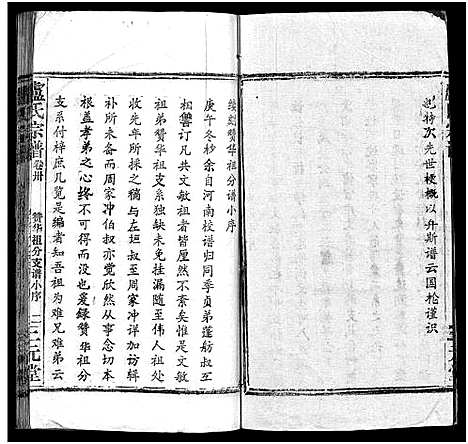 爰特次先世梗概以弁斯谱云国桢谨识
续刻赞华祖分谱小序
庚午冬杪余自河南校谱归同季贞莲舫叔互
相雠订凡共文敏祖者皆厘然不紊矣惟是文敏
祖弟赞华祖支系独缺未免挂漏随至伟人祖处
收先年采择之稿与左垣叔至周家冲详加访辑
补所未备而周家冲伯叔亦觉欣然从事念切本
根盖孝弟之心终不可得而没也爰录赞华祖分
支系付梓庶几览是编者知吾祖为难兄难弟云
卢氏宗谱
卷卅
赞华祖分支谱小序
二
三元堂